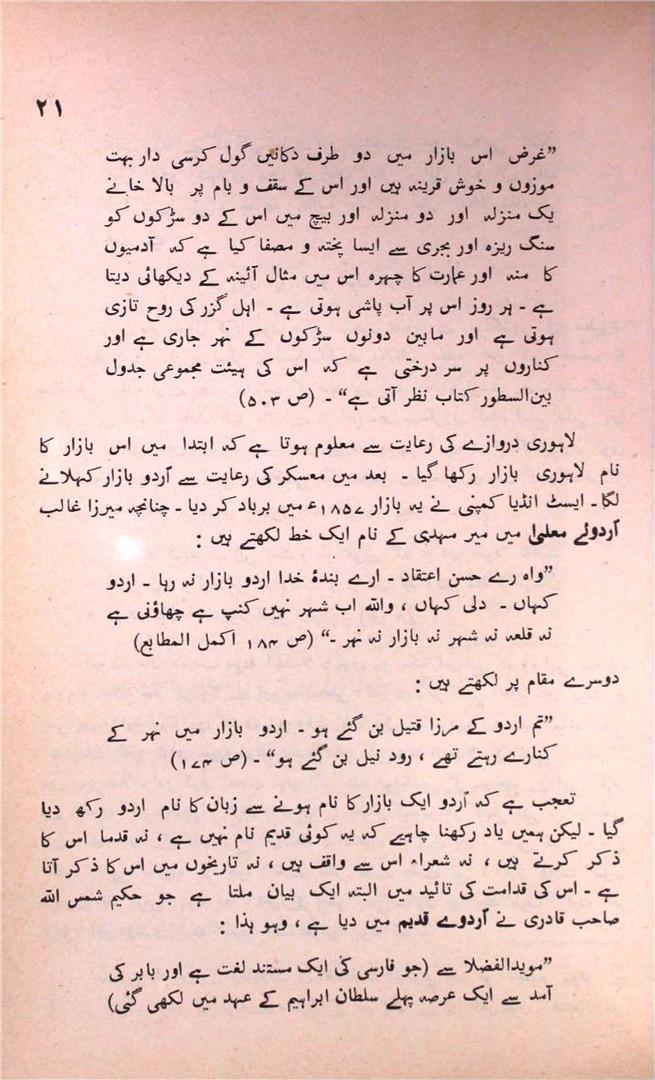 ۲۱
”غرض اس بازار میں دو طرف دکانیں گول کرسی دار بہت
موزوں و خوش قرینہ ہیں اور اس کے سقف و بام پر بالا خانے
یک منزلہ اور دو منزلہ اور بیچ میں اس کے دو سڑکوں کو
سنگ ریزہ اور بجری سے ایسا پختہ و مصفا کیا ہے کہ آدمیوں
کا منہ اور عمارت کا چہرہ اس میں مثال آئینہ کے دیکھائی دیتا
ہے ۔ ہر روز اس پر آب پاشی ہوتی ہے ۔ اہل گزر کی روح تازی
ہوتی ہے اور مابین دونوں سڑکوں کے نہر جاری ہے اور
کناروں پر سر درختی ہے کہ اس کی ہیئت مجموعی جدول
بین‌السطور کتاب نظر آتی ہے“ ۔ (ص ۵۰۳)
لاہوری دروازے کی رعایت سے معلوم ہوتا ہے کہ ابتدا میں اس بازار کا
نام لاہوری بازار رکھا گیا ۔ بعد میں معسکر کی رعایت سے اُردو بازار کہلانے
لگا ۔ ایسٹ انڈیا کمپنی نے یہ بازار ۱۸۵۷ء میں برباد کر دیا ۔ چنانچہ میرزا غالب
اُردوئے معلیٰ میں میر مہدی کے نام ایک خط لکھتے ہیں :
”واہ رے حسن اعتقاد ۔ ارے بندۂ خدا اردو بازار نہ رہا ۔ اردو
کہاں ۔ دلی کہاں ، واللہ اب شہر نہیں کنپ ہے چھاؤنی ہے
نہ قلعہ نہ شہر نہ بازار نہ نہر ۔“ (ص ۱۸۴ اکمل المطابع)
دوسرے مقام پر لکھتے ہیں :
”تم اردو کے مرزا قتیل بن گئے ہو ۔ اردو بازار میں نہر کے
کنارے رہتے تھے ، رود نیل بن گئے ہو“ ۔ (ص ۱۷۴)
تعجب ہے کہ اُردو ایک بازار کا نام ہونے سے زبان کا نام اردو رکھ دیا
گیا ۔ لیکن ہمیں یاد رکھنا چاہیے کہ یہ کوئی قدیم نام نہیں ہے ، نہ قدما اس کا
ذکر کرتے ہیں ، نہ شعراء اس سے واقف ہیں ، نہ تاریخوں میں اس کا ذکر آتا
ہے ۔ اس کی قدامت کی تائید میں البتہ ایک بیان ملتا ہے جو حکیم شمس اللہ
صاحب قادری نے اُردوے قدیم میں دیا ہے ، وہو ہذا :
”مویدالفضلا سے (جو فارسی کی ایک مستند لغت ہے اور بابر کی
آمد سے ایک عرصہ پہلے سلطان ابراہیم کے عہد میں لکھی گئی)